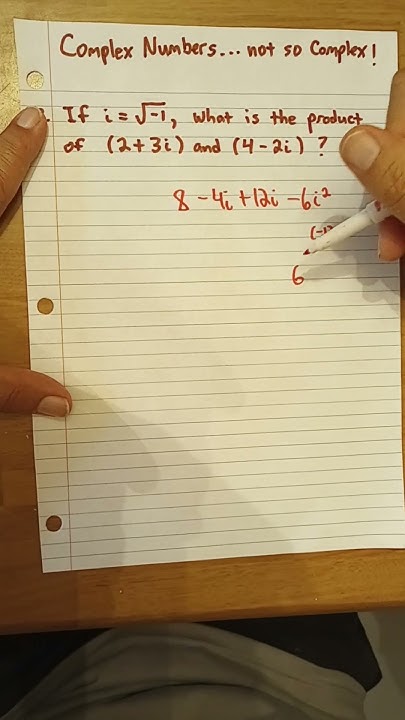 Complex Numbers... not so Complex!
If i = √-1, what is the product
of (2 + 3i) and (4 - 2i) ?
8 - 4i + 12i - 6i²
(-1)
6